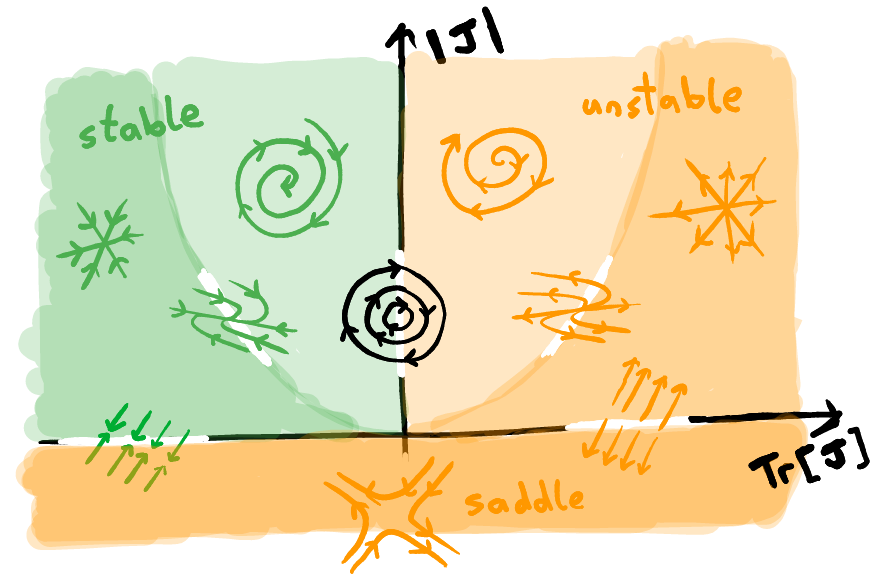 |J|
stable
unstable
Tr[J]
saddle